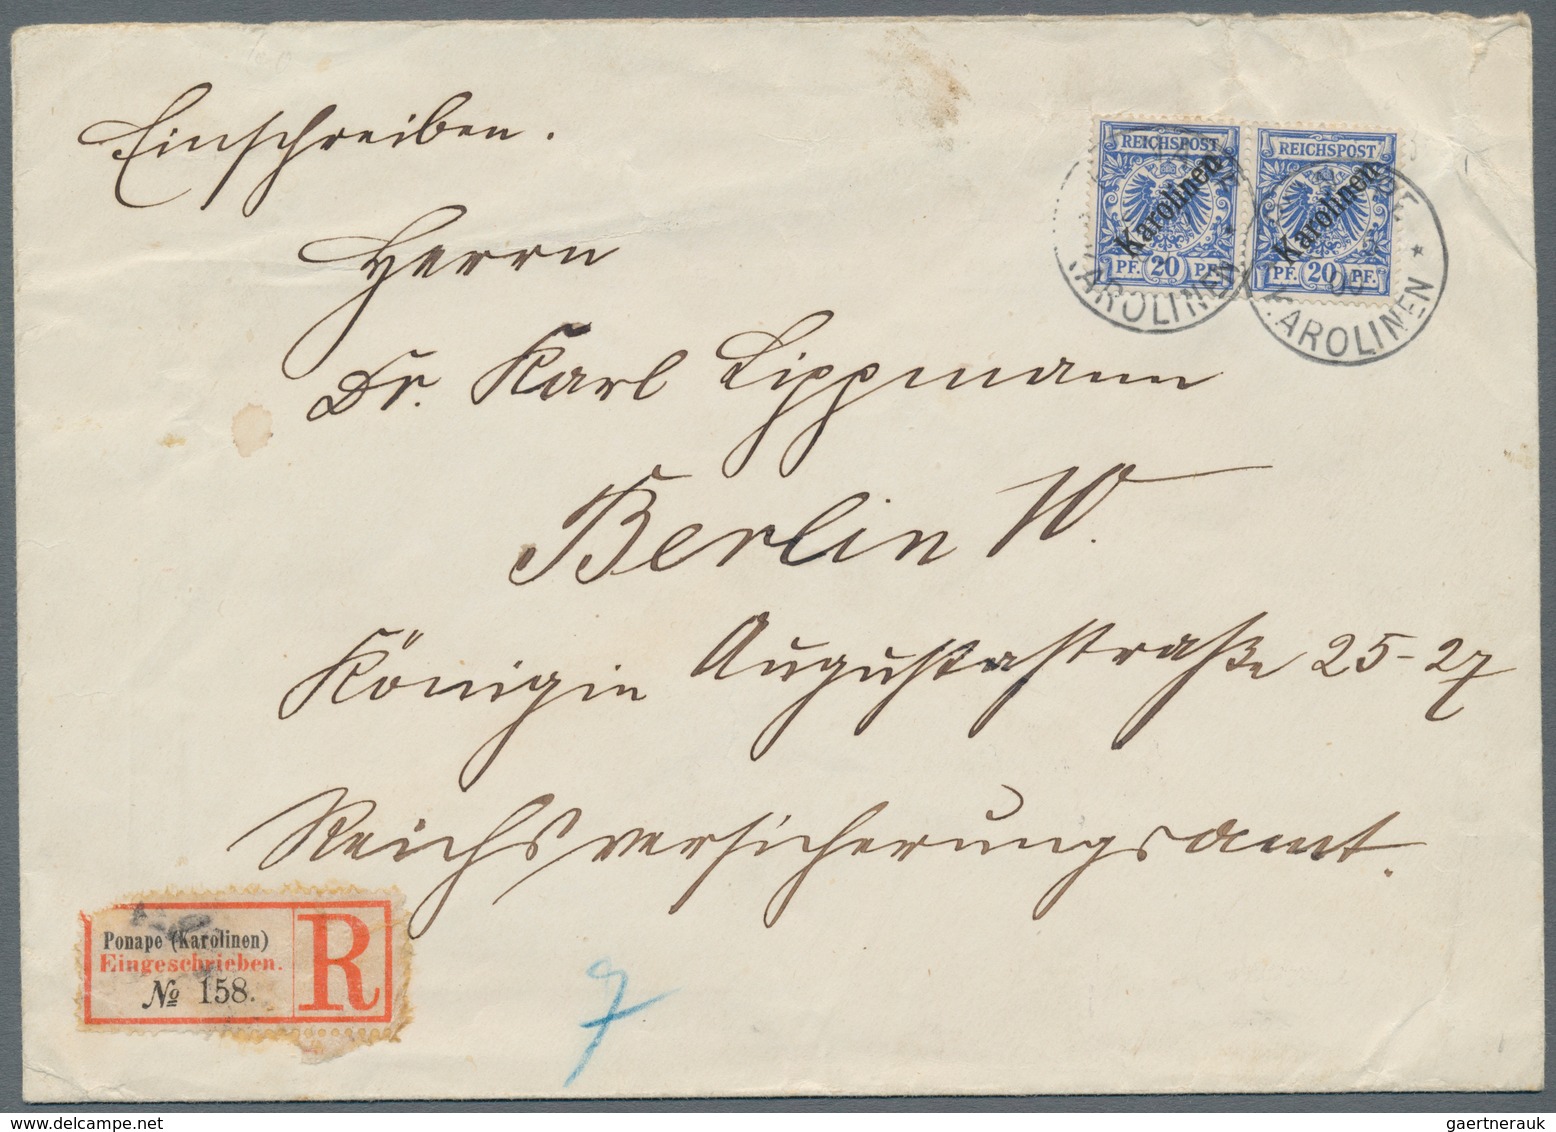 Einschreiben.
REICHSPOST REICHSPOST
Karolinen Karolinen
PF. 20 PF. PF. 20 PF.
KAROLINEN KAROLINEN
Herrn
Dr. Karl Lippmann
Berlin W.
Königin Augustastraße 25-27
Reichsversicherungsamt.
Ponape (Karolinen)
Eingeschrieben.
№ 158.
R
7
gaertnerauk @ delcampe.net